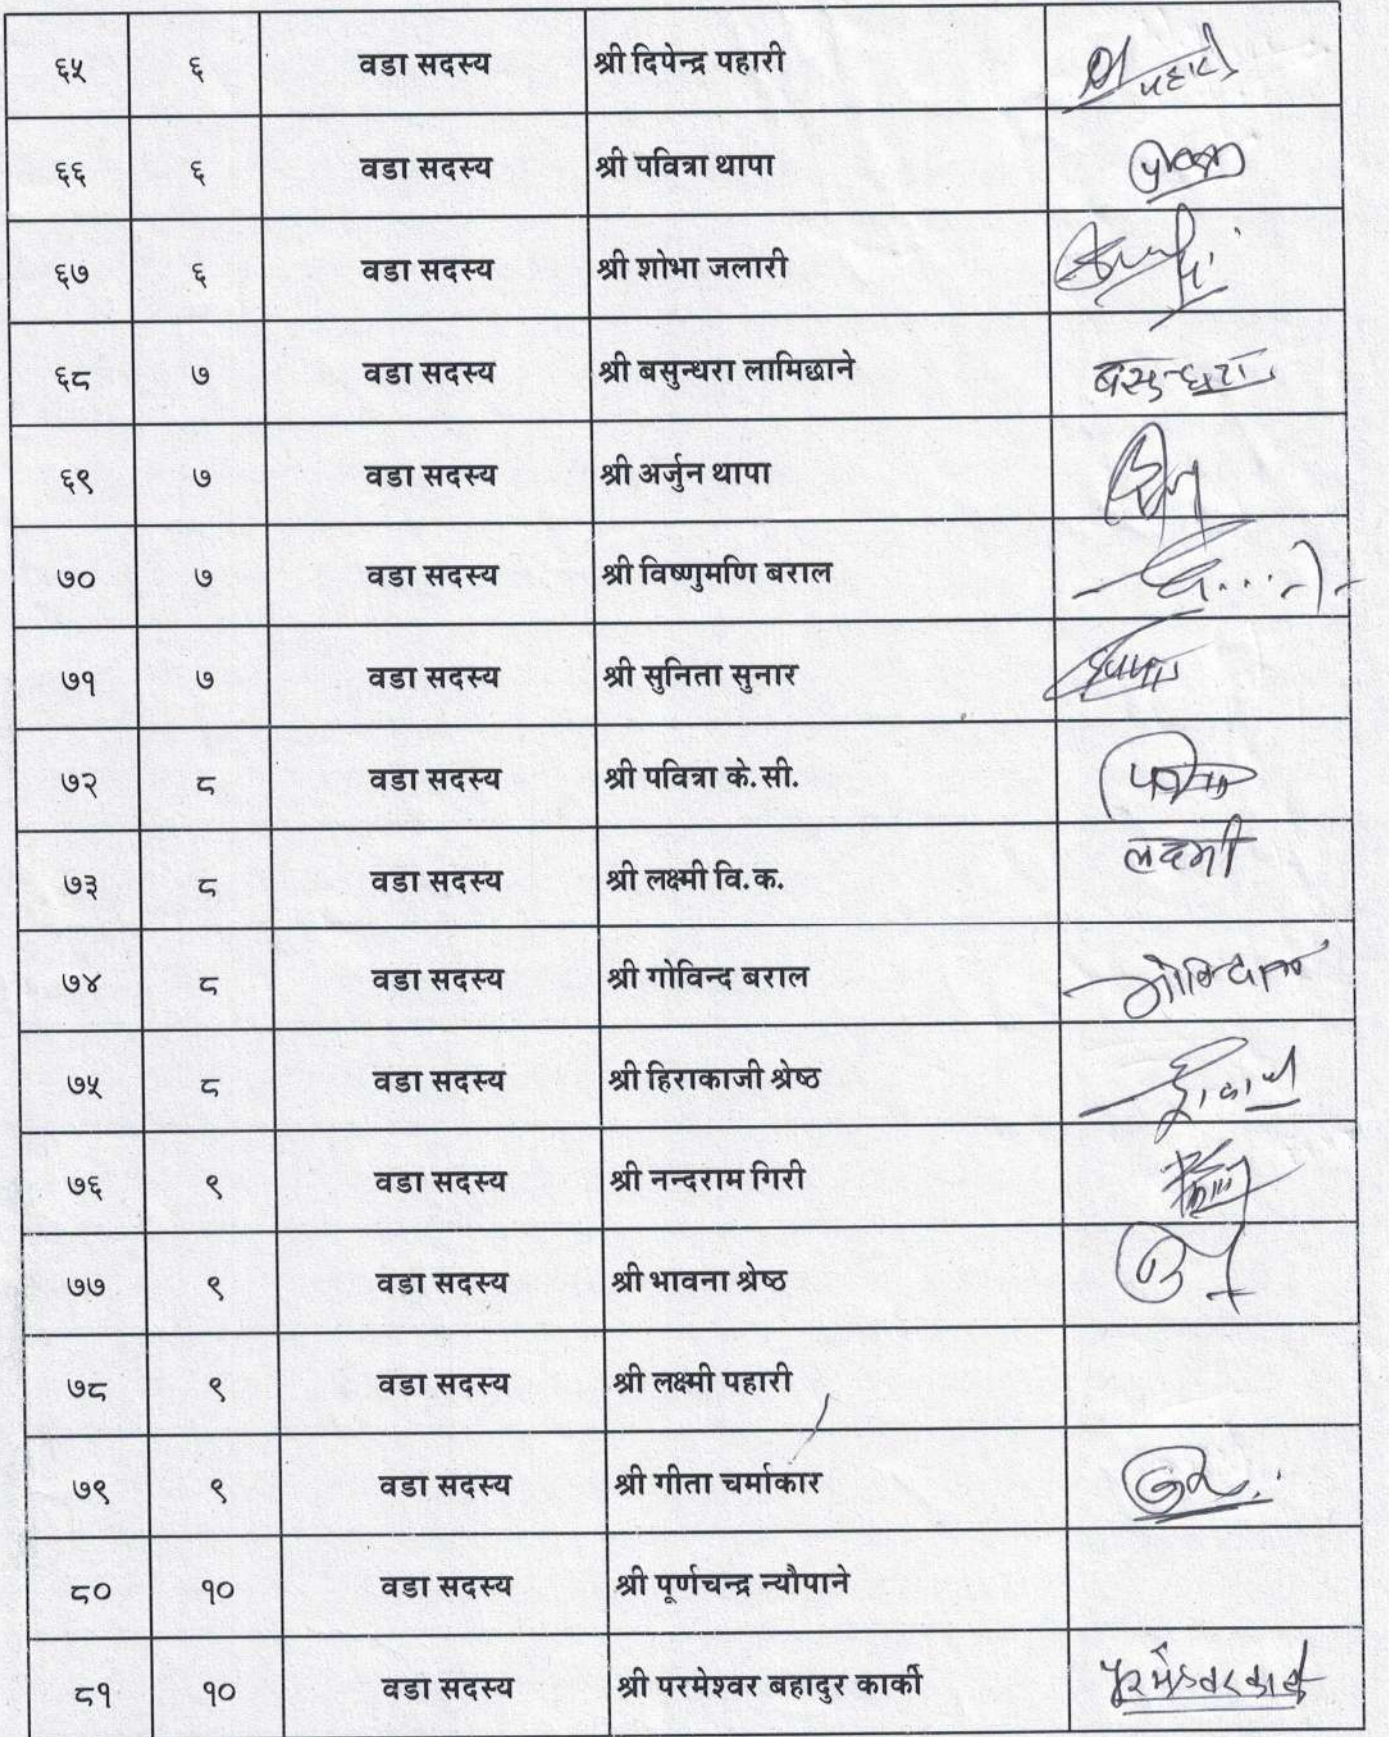 ६५ ६ वडा सदस्य श्री दिपेन्द्र पहारी पहारी
६६ ६ वडा सदस्य श्री पवित्रा थापा
६७ ६ वडा सदस्य श्री शोभा जलारी
६८ ७ वडा सदस्य श्री बसुन्धरा लामिछाने बसुन्धरा
६९ ७ वडा सदस्य श्री अर्जुन थापा
७० ७ वडा सदस्य श्री विष्णुमणि बराल
७१ ७ वडा सदस्य श्री सुनिता सुनार
७२ ८ वडा सदस्य श्री पवित्रा के.सी.
७३ ८ वडा सदस्य श्री लक्ष्मी वि.क. लक्ष्मी
७४ ८ वडा सदस्य श्री गोविन्द बराल
७५ ८ वडा सदस्य श्री हिराकाजी श्रेष्ठ
७६ ९ वडा सदस्य श्री नन्दराम गिरी
७७ ९ वडा सदस्य श्री भावना श्रेष्ठ
७८ ९ वडा सदस्य श्री लक्ष्मी पहारी
७९ ९ वडा सदस्य श्री गीता चर्माकार
८० १० वडा सदस्य श्री पूर्णचन्द्र न्यौपाने
८१ १० वडा सदस्य श्री परमेश्वर बहादुर कार्की